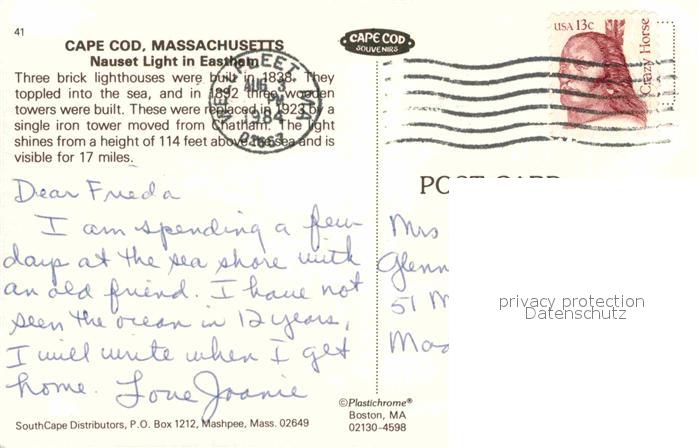 41
CAPE COD, MASSACHUSETTS
Nauset Light in Eastham
Three brick lighthouses were built in 1838. They
toppled into the sea, and in 1892 three wooden
towers were built. These were replaced in 1923 by a
single iron tower moved from Chatham. The light
shines from a height of 114 feet above the sea and is
visible for 17 miles.
AUG 3
PM
1984
02663
CAPE COD
SOUVENIRS
USA 13c
Crazy Horse
POST CARD
Dear Frieda
I am spending a few
days at the sea shore with
an old friend. I have not
seen the ocean in 12 years,
I will write when I get
home. Love Joanie
Mrs
Glenn
51 M
privacy protection
Datenschutz
©Plastichrome®
Boston, MA
02130-4598
SouthCape Distributors, P.O. Box 1212, Mashpee, Mass. 02649